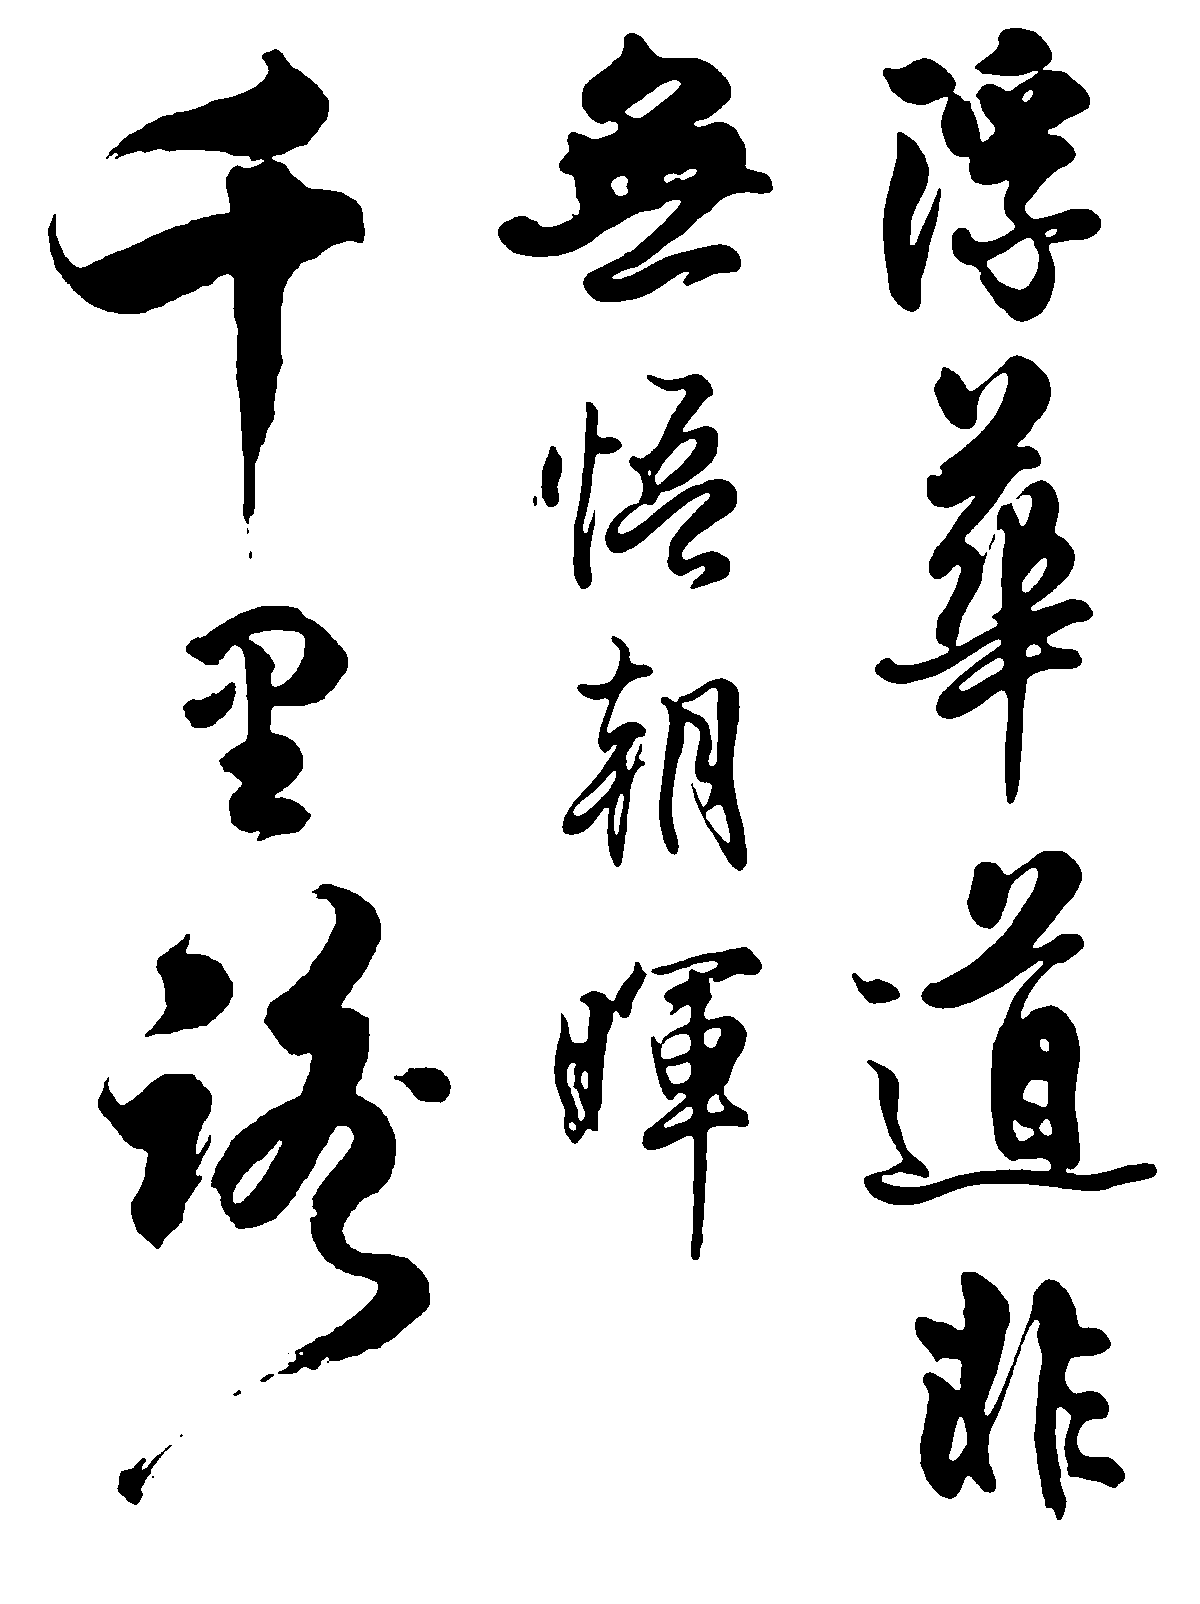 浮華道非
無悟朝暉
千里